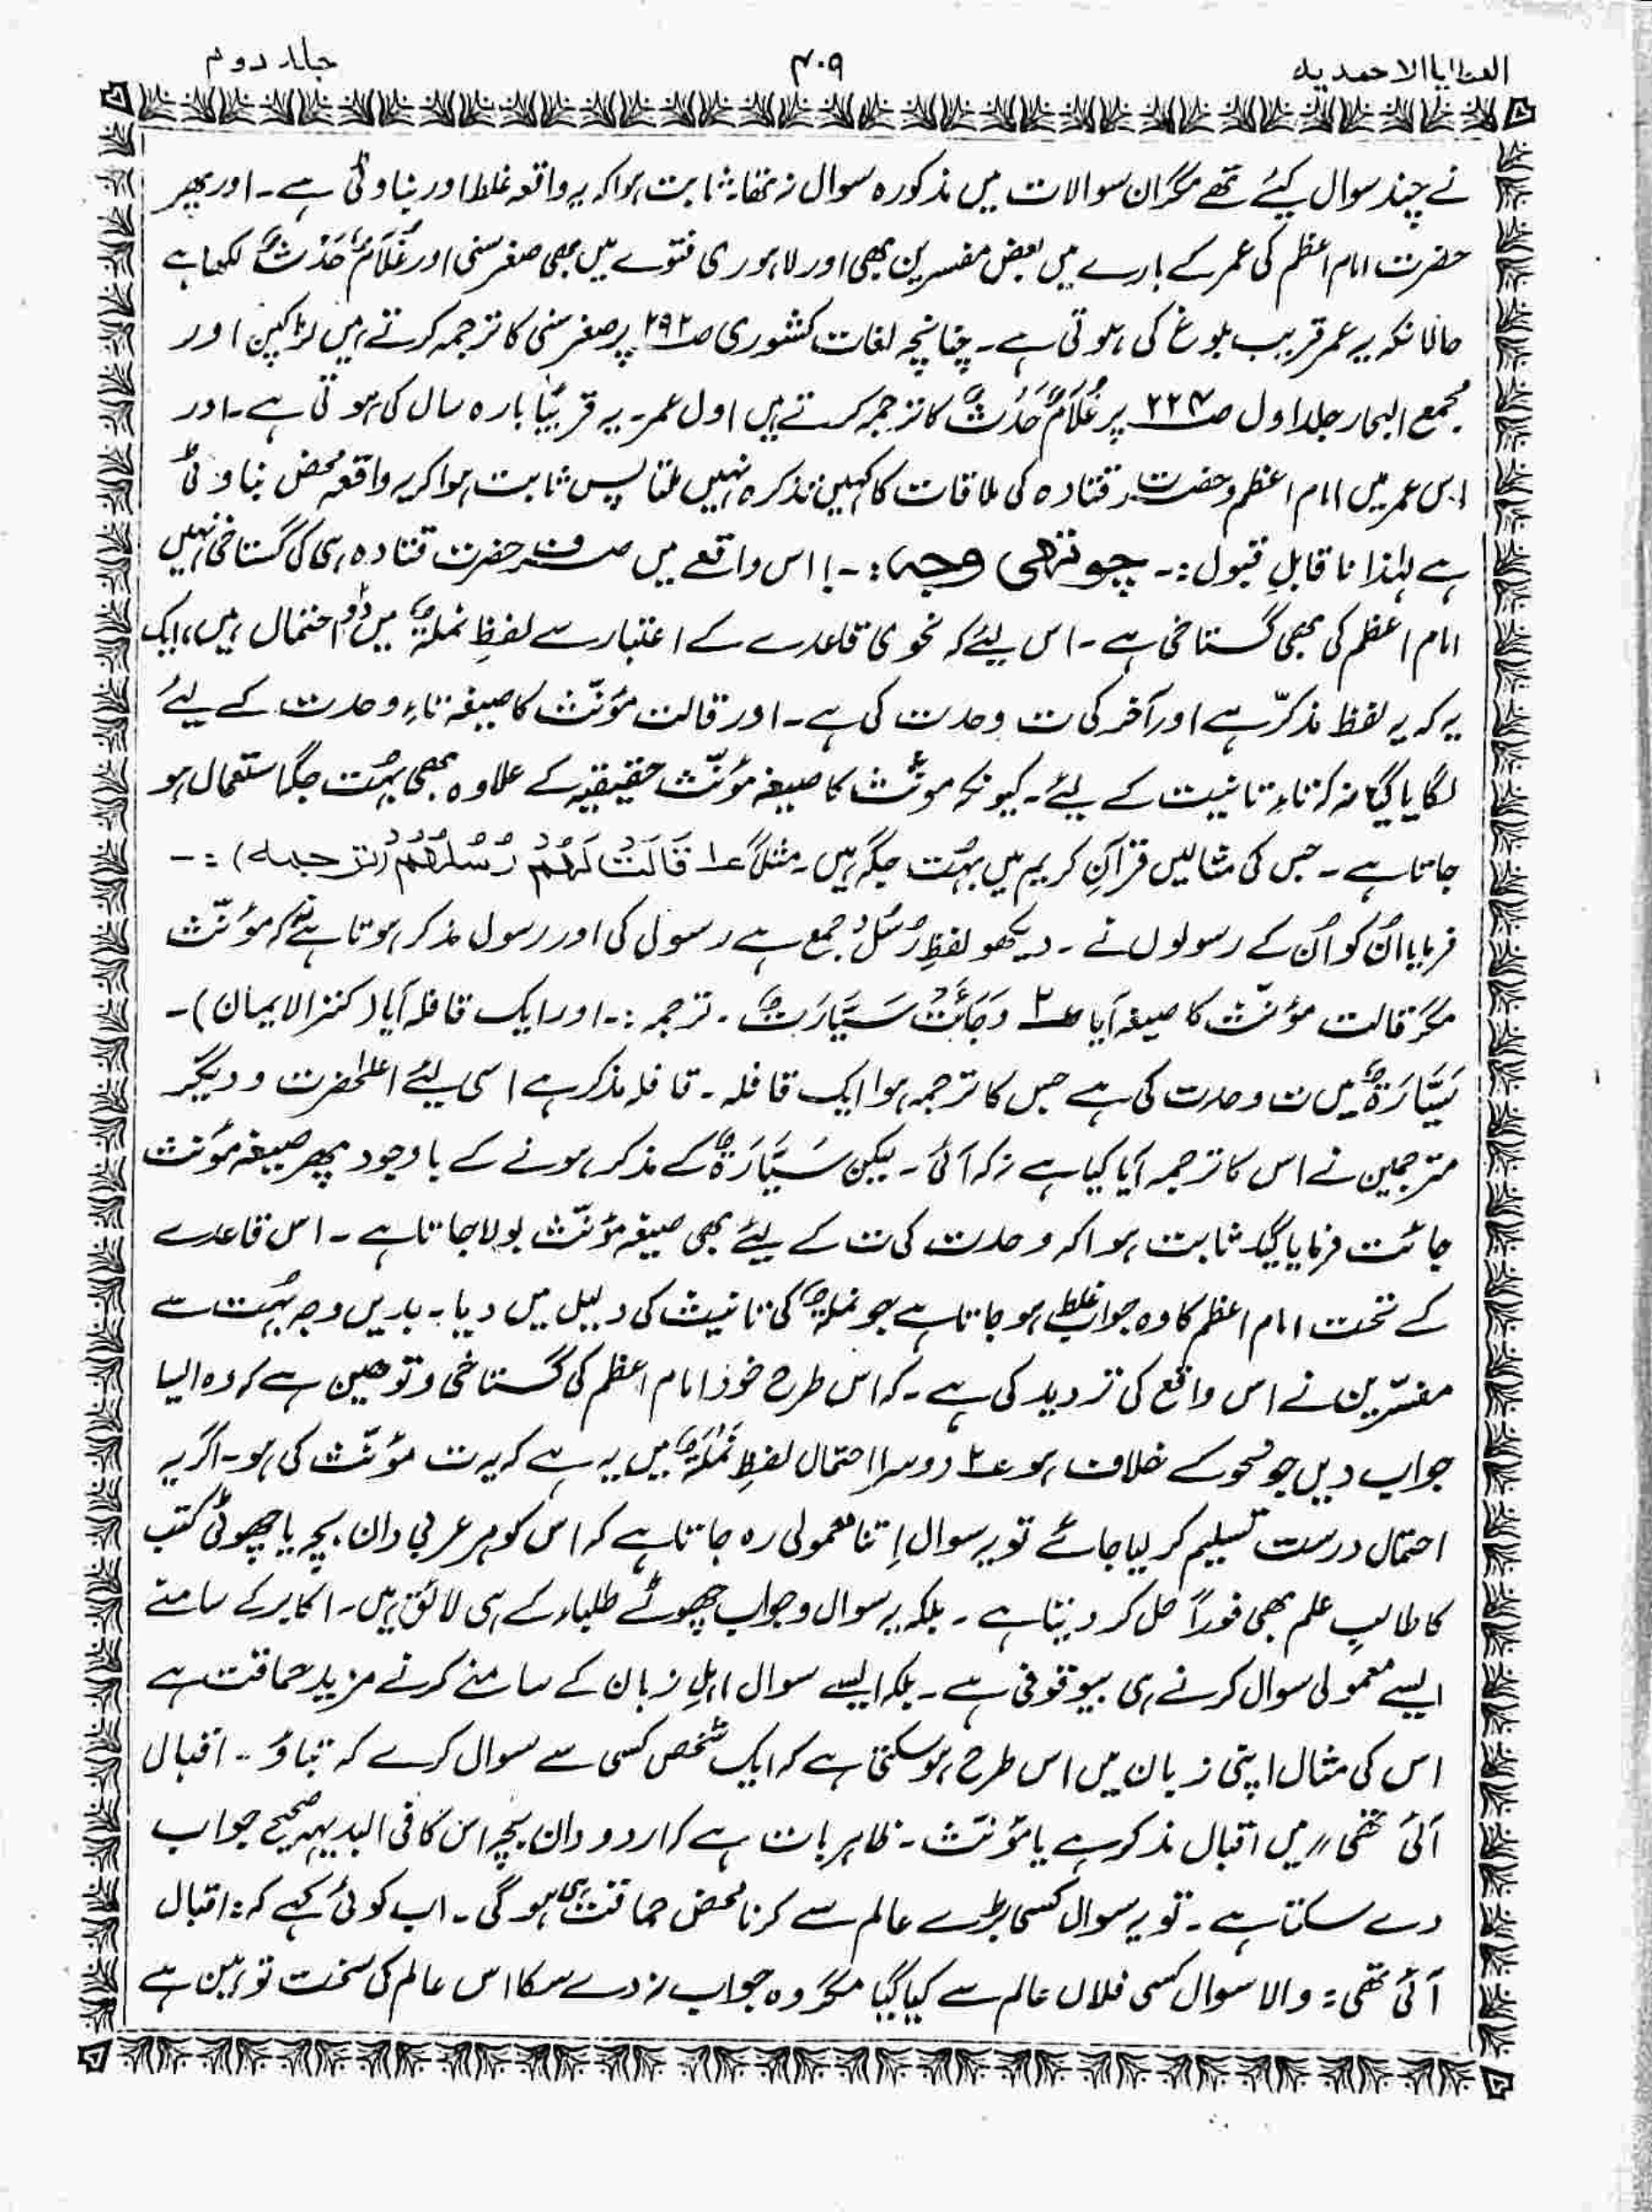 العطایا الاحمدیہ ۴۰۹ جلد دوم
نے چند سوال کیئے تھے مگر ان سوالات میں مذکورہ سوال نہ تھا۔ ثابت ہوا کہ یہ واقعہ غلط اور بناوٹی ہے۔ اور پھر
حضرت امام اعظم کی عمر کے بارے میں بعض مفسرین بھی اور لاہوری فتوے میں بھی صغر سنی اور غُلَامٌ حَدَثٌ لکھا ہے
حالانکہ یہ عمر قریب بلوغ کی ہوتی ہے۔ چنانچہ لغات کشوری صـ۲۹۲ پر صغر سنی کا ترجمہ کرتے ہیں لڑاکپن اور
مجمع البحار جلد اول صـ۲۲۴ پر غُلَامٌ حَدَثٌ کا ترجمہ کرتے ہیں اول عمر۔ یہ قریبًا بارہ سال کی ہوتی ہے۔ اور
اس عمر میں امام اعظم و حضرت قتادہ کی ملاقات کا کہیں تذکرہ نہیں ملتا پس ثابت ہوا کہ یہ واقعہ محض بناوٹی
ہے لہٰذا ناقابلِ قبول :۔ چوتھی وجہ :۔ اس واقعے میں صرف حضرت قتادہ ہی کی گستاخی نہیں
امام اعظم کی بھی گستاخی ہے۔ اس لیئے کہ نحوی قاعدے کے اعتبار سے لفظِ نملۃٌ میں دو احتمال ہیں، ایک
یہ کہ یہ لفظ مذکرّ ہے اور آخر کی ت وحدت کی ہے۔ اور قالت مؤنّث کا صیغہ تاءِ وحدت کے لیئے
لگایا گیا نہ کہ تاءِ تانیث کے لیئے۔ کیونکہ مونّث کا صیغہ مؤنّث حقیقیہ کے علاوہ بھی بہُت جگہ استعمال ہو
جاتا ہے۔ جس کی مثالیں قرآنِ کریم میں بہُت جگہ ہیں۔ مثلاً ؏۱ قَالَتْ لَهُمْ رُسُلُهُمْ (ترجمہ) :۔
فرمایا اُن کو اُن کے رسولوں نے۔ دیکھو لفظِ رُسُلُ جمع ہے رسول کی اور رسول مذکر ہوتا ہے نہ کہ مؤنّث
مگر قالت مؤنّث کا صیغہ آیا ؏۲ وَجَائَتْ سَیَّارَتٌ۔ ترجمہ :۔ اور ایک قافلہ آیا (کنز الایمان)۔
سَیَّارَۃٌ میں ت وحدت کی ہے جس کا ترجمہ ہوا ایک قافلہ۔ قافلہ مذکر ہے اسی لیئے اعلحضرت و دیگر
مترجمین نے اس کا ترجمہ آیا کیا ہے نہ کہ آئی۔ لیکن سَیَّارَۃٌ کے مذکر ہونے کے باوجود پھر صیغہ مؤنث
جائت فرمایا گیا۔ ثابت ہوا کہ وحدت کی ت کے لیئے بھی صیغہ مؤنّث بولا جاتا ہے۔ اس قاعدے
کے تحت امام اعظم کا وہ جواب غلط ہو جاتا ہے جو نملۃٌ کی تانیث کی دلیل میں دیا۔ بدیں وجہ بہُت سے
مفسّرین نے اس واقع کی تردید کی ہے۔ کہ اس طرح خود امام اعظم کی گستاخی و توھین ہے کہ وہ ایسا
جواب دیں جو نحو کے خلاف ہو ؏۲ دوسرا احتمال لفظِ نَمْلَۃٌ میں یہ ہے کہ یہ ت مؤنّث کی ہو۔ اگر یہ
احتمال درست تسلیم کر لیا جائے تو یہ سوال اِتنا معمولی رہ جاتا ہے کہ اس کو ہر عربی دان بچہ یا چھوٹی کتب
کا طالبِ علم بھی فوراً حل کر دیتا ہے۔ بلکہ یہ سوال و جواب چھوٹے طلباء کے ہی لائق ہیں۔ اکابر کے سامنے
ایسے معمولی سوال کرنے ہی بیوقوفی ہے۔ بلکہ ایسے سوال اہلِ زبان کے سامنے کرنے مزید حماقت ہے
اس کی مثال اپنی زبان میں اس طرح ہو سکتی ہے کہ ایک شخص کسی سے سوال کرے کہ بتاؤ ۔۔ اقبال
آئی تھی ،، میں اقبال مذکر ہے یا مؤنّث۔ ظاہر بات ہے کہ اردو دان بچہ اس کا فی البدیہہ صحیح جواب
دے سکتا ہے۔ تو یہ سوال کسی بڑے عالم سے کرنا محض حماقت ہی ہو گی۔ اب کوئی کہے کہ : اقبال
آئی تھی : والا سوال کسی فلاں عالم سے کیا گیا مگر وہ جواب نہ دے سکا اس عالم کی سخت توہین ہے